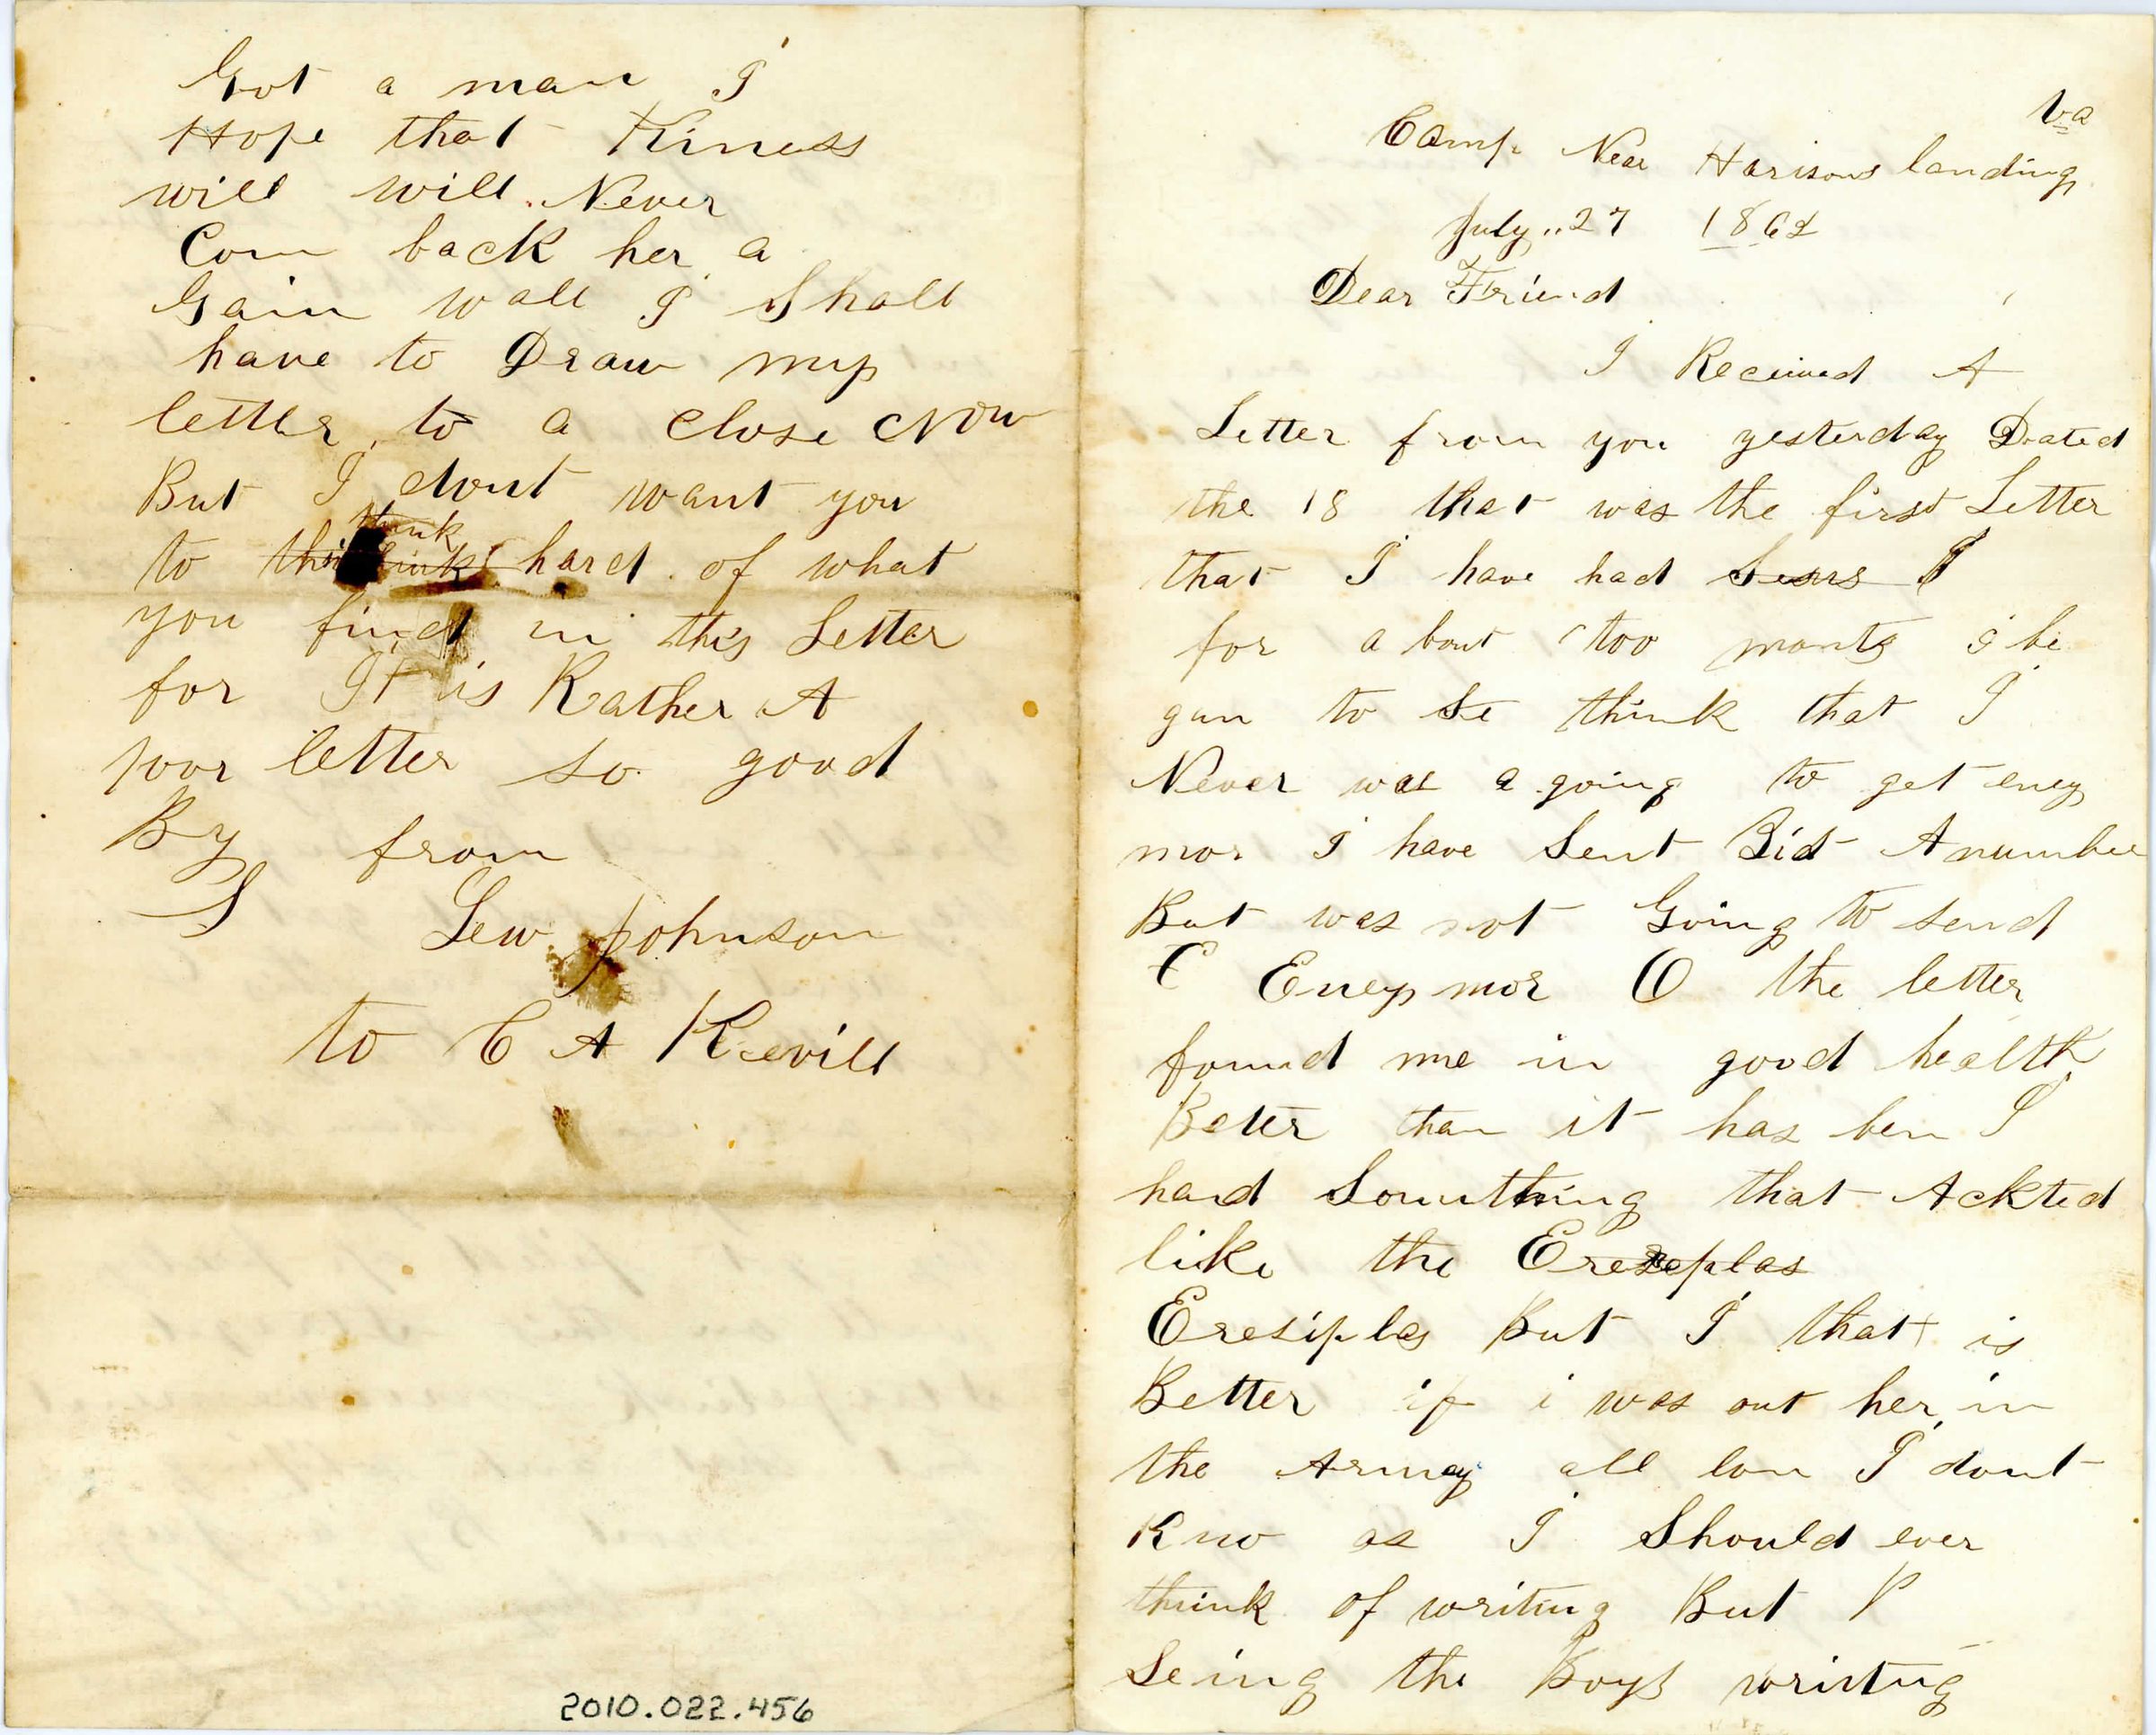 Va
Camp Near Harisons landing
July 27 1862
Dear Friend
I Received A
Letter from you yesterday Dated
the 18 that was the first Letter
that I have had I
for a bout too monts i be
gun to Se think that I
Never was a going to get eney
mor I have Sent Bid A number
But was not Going to send
Eney mor O the letter
found me in good health
Beter than it has ben I
had Somthing that Ackted
like the Ereseplas
Eresiplas But I that is
Better if i was out her in
the Armey all lon I dont
Kno as I Should ever
think of writing But I
Seing the Boys writing
Got a man I
Hope that Kiness
will will Never
Com back her a
Gain wall I Shall
have to Draw my
letter to a Close Now
But I dont want you
think
to think hard of what
you find in this Letter
for It is Rather A
poor letter so good
By from
S
Lew Johnson
to C A Kevill
2010.022.456